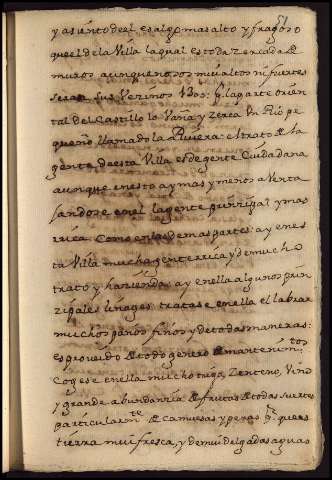 51
y asiento del es algo mas alto y fragoso
que el de la Villa la qual es toda zercada de
muros aunque no son mui altos ni fuertes
seran sus Vezinos 1300: pr la parte orien
tal del Castillo lo Vaña y zerca Un Rio pe
queño llamado la Rivera: el trato de la
gente de esta Villa es de gente Ciudadana
aunque en esto ay mas y menos aventa
jandose en el la gente prinzipal y mas
rrica. Como en las demas partes: ay en es
ta Villa mucha gente rrica y de mucho
trato y hazienda: ay en ella algunos prin
zipales linages: tratase en ella el labrar
muchos paños finos y de todas maneras:
es proveido de todo genero de mantenimtos
Cogese en ella mucho trigo, Zenteno, Vino
y grande abundanzia de frutas de todas suertes
particularmte de camuesas y peras pr que es
tierra mui fresca, y de mui delgadas aguas